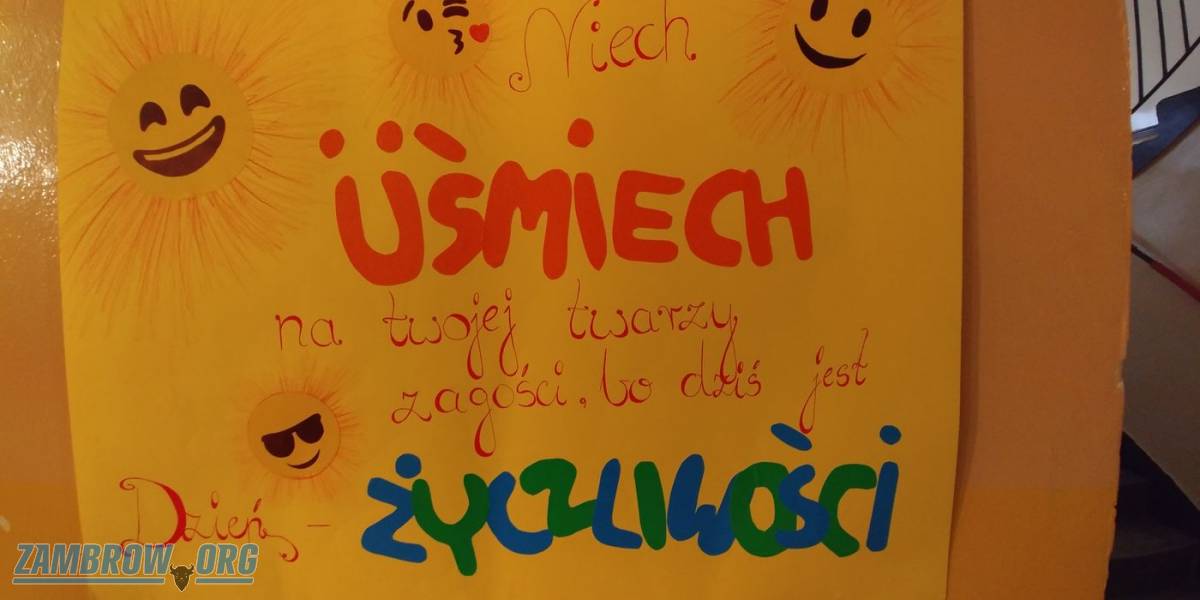 Niech
UŚMIECH
na twojej twarzy
zagości, bo dziś jest
Dzień - ŻYCZLIWOŚCI
ZAMBROW.ORG